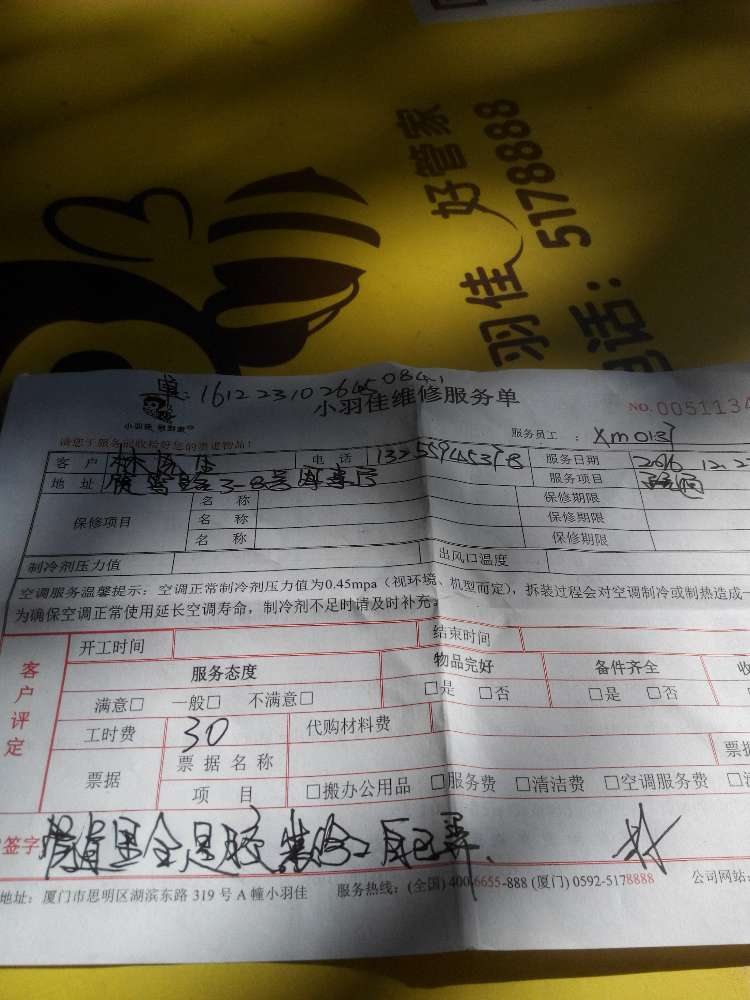 好管家
羽佳
电话: 5178888
单: 161223102645084
小羽佳维修服务单
小羽佳 救到家
NO. 0051134
请您于服务前收检好您的贵重物品!
服务员工 : Xm0137
客 户 林 电 话 服务日期 2016.12.2
地 址 3-8号 服务项目
保修项目 名 称 保修期限
名 称 保修期限
名 称 保修期限
制冷剂压力值 出风口温度
空调服务温馨提示:空调正常制冷剂压力值为0.45mpa(视环境、机型而定),拆装过程会对空调制冷或制热造成一
为确保空调正常使用延长空调寿命,制冷剂不足时请及时补充。
客户评定
开工时间 结束时间
服务态度 物品完好 备件齐全 收
满意□ 一般□ 不满意□ □是 □否 □是 □否
工时费 30 代购材料费
票据 票 据 名 称 票据
项 目 □搬办公用品 □服务费 □清洁费 □空调服务费 □
签字 全是 林
地址:厦门市思明区湖滨东路 319 号 A 幢小羽佳 服务热线:(全国) 400-6655-888 (厦门) 0592-5178888 公司网站: